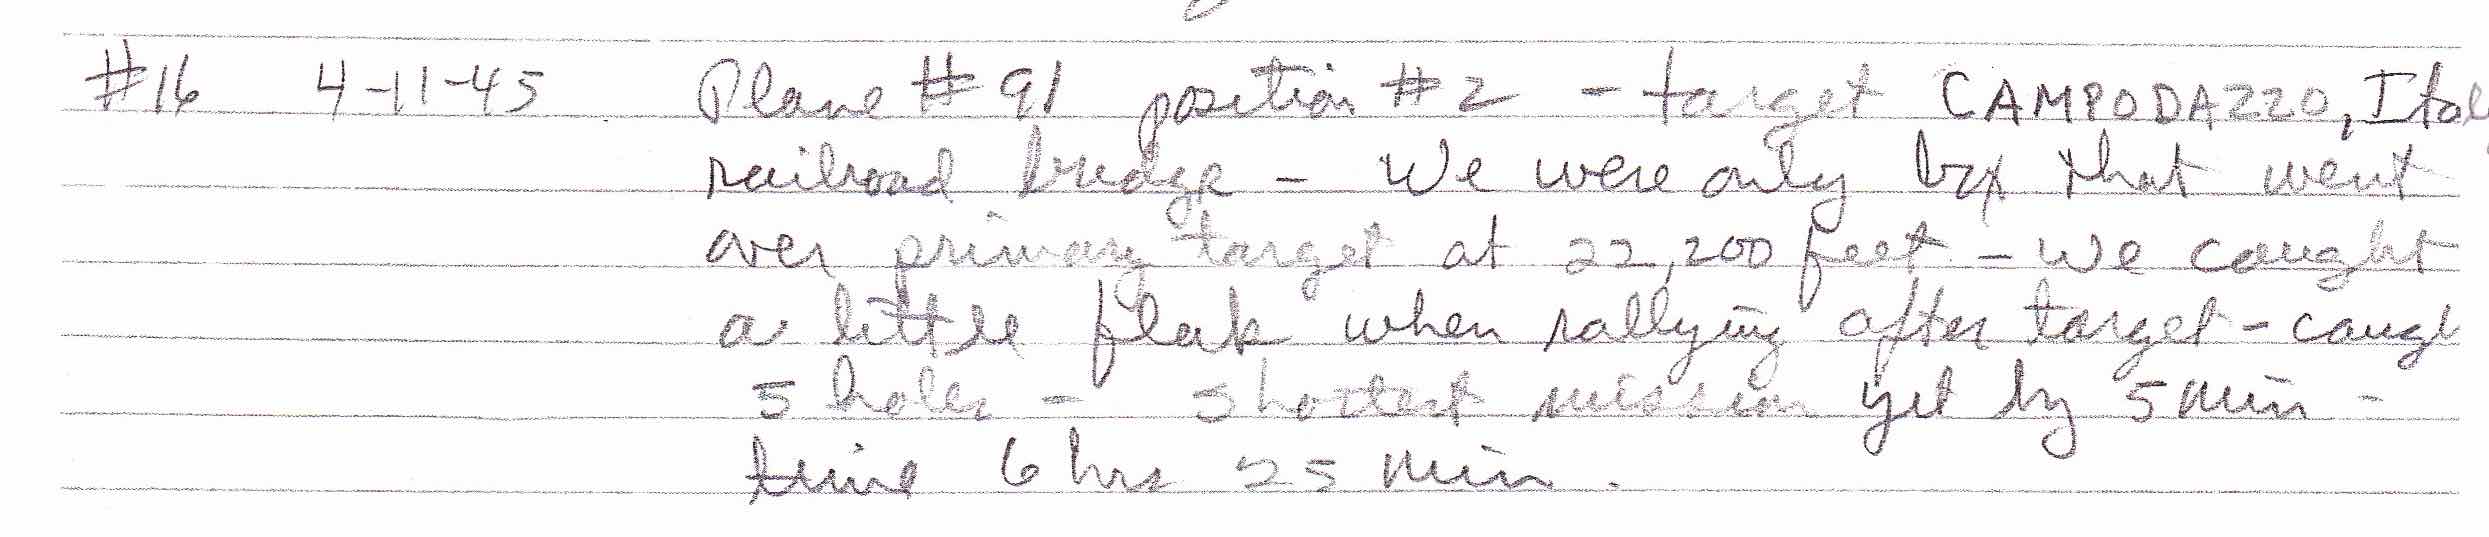 #16 4-11-45 Plane # 91 position #2 - target CAMPODAZZO, Italy
railroad bridge - We were only box that went
over primary target at 22,200 feet - we caught
a little flak when rallying after target - caugh
5 holes - shortest mission yet by 5 min -
time 6 hrs 25 min.